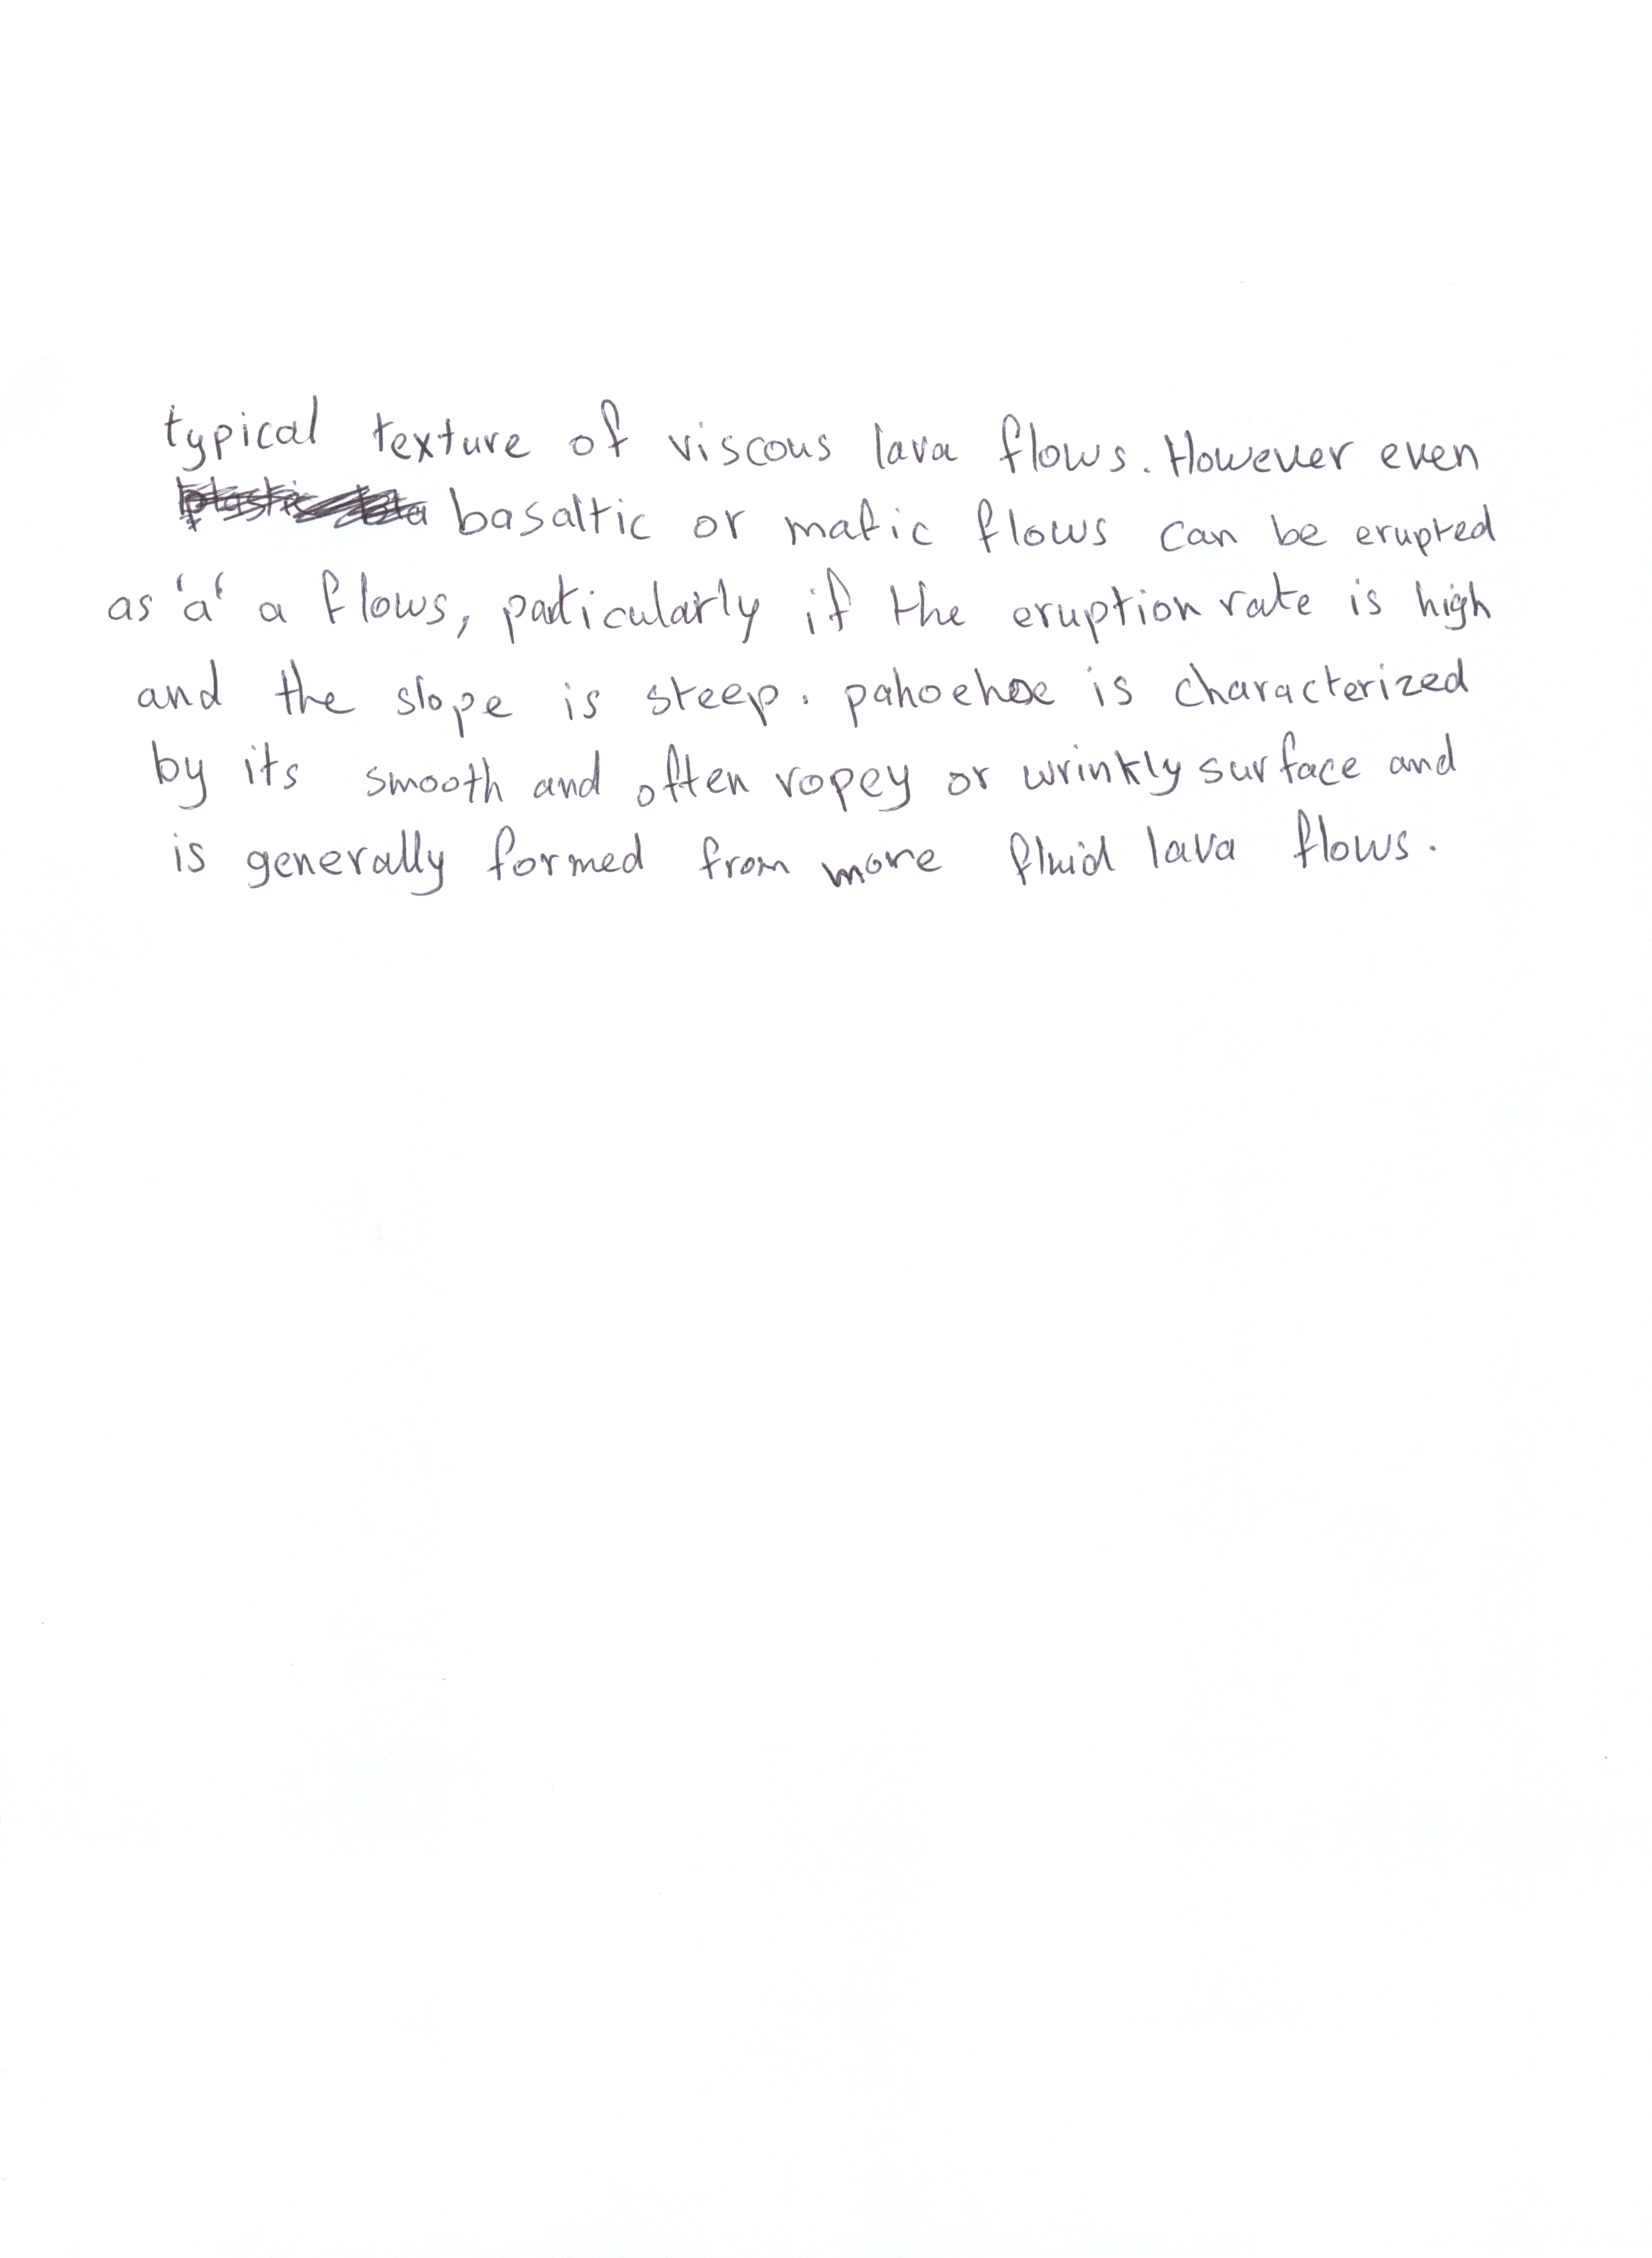 typical texture of viscous lava flows. However even
basaltic or mafic flows can be erupted
as 'a' a flows, particularly if the eruption rate is high
and the slope is steep. pahoehoe is characterized
by its smooth and often ropey or wrinkly surface and
is generally formed from more fluid lava flows.